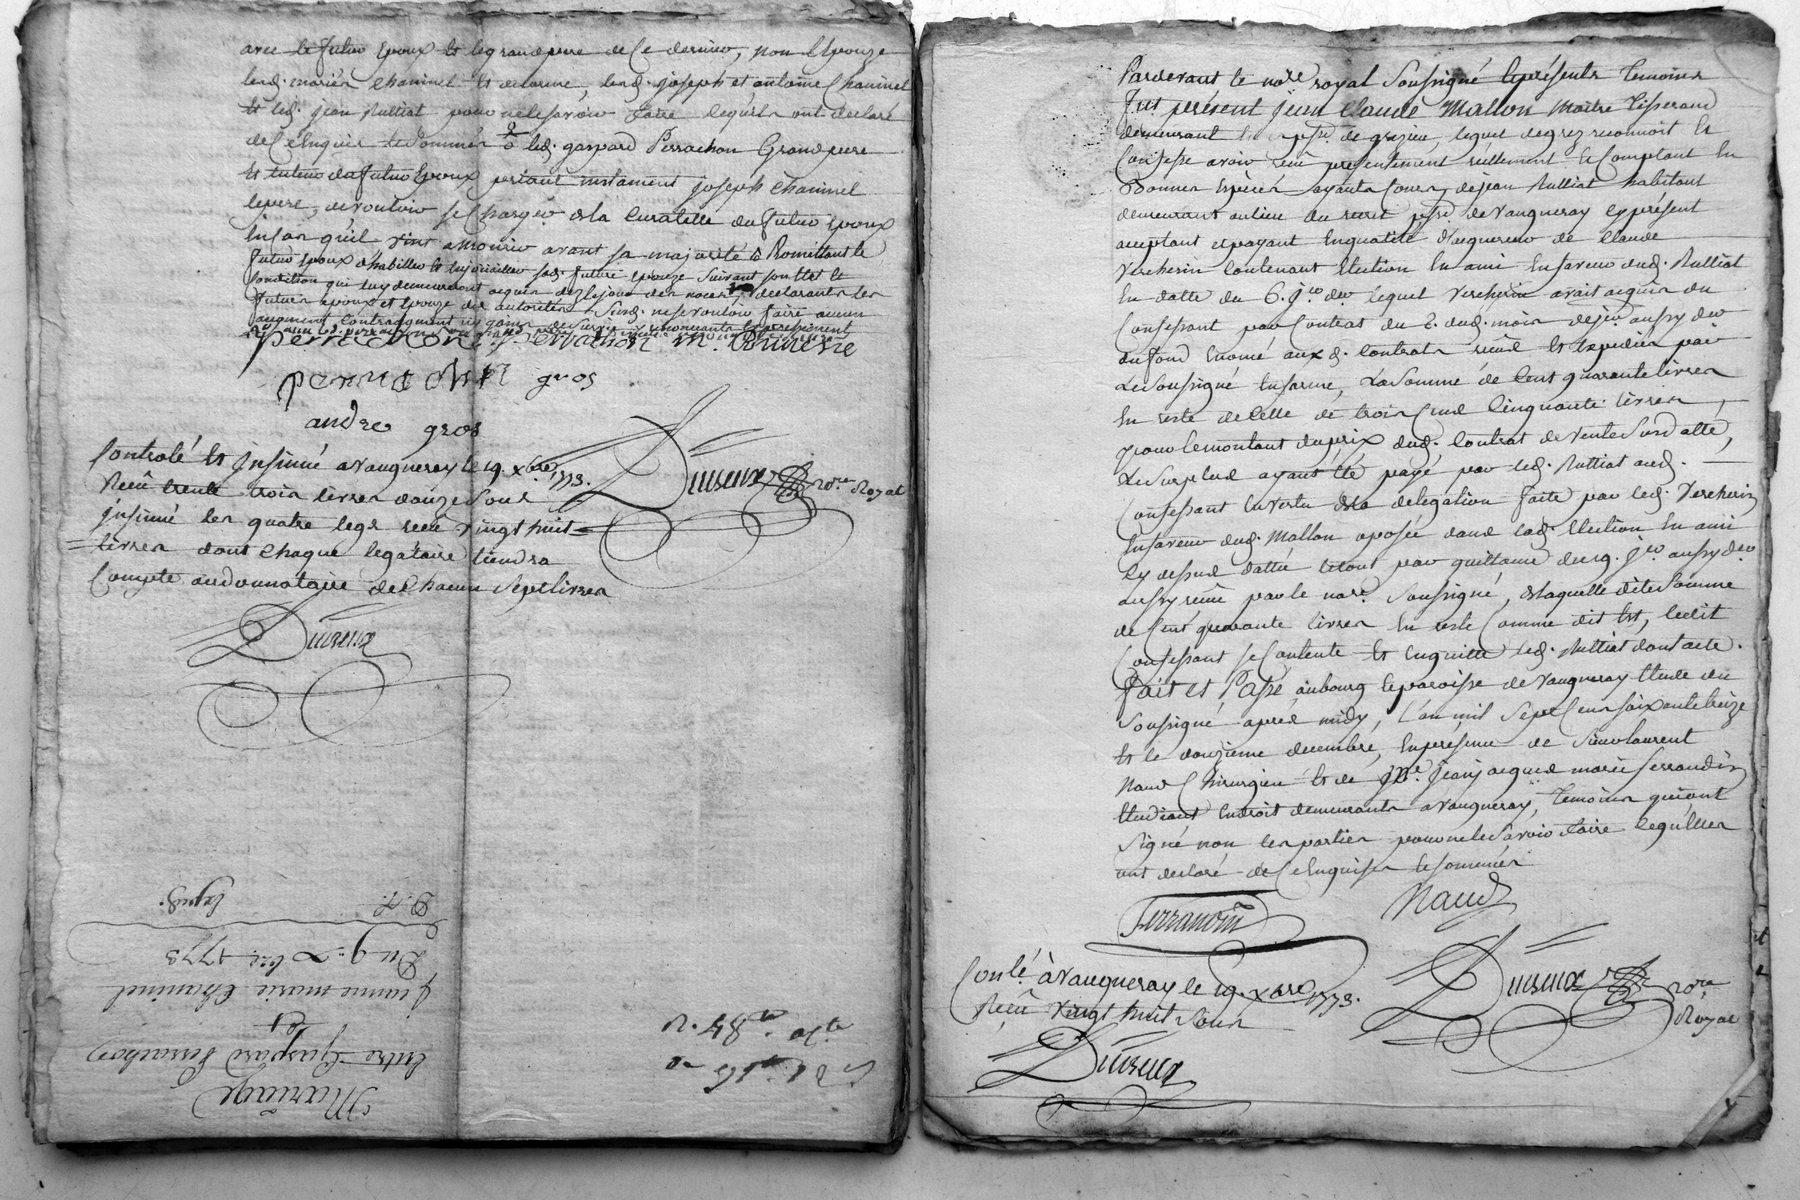 avec le futur Epoux et le grand pere de Ce dernier, non l'Epouze
lesd. mariés Chaninel et delorme, lesd. joseph et antoine Chaninel
et led. jean Rulliat pour ne le savoir faire lequels ont declaré
de Ce Enquis et sommés led. gaspard Perrachon Grand pere
et tuteur du futur Epoux priant instament joseph Chaninel
le pere, de vouloir se Charger de la Curatelle du futur Epoux
En Cas qu'il vint a mourir avant sa majorité Promettant le
futur Epoux d'habiller et enjoialler sad. future Epouze suivant son Etat et
Condition qui luy demeureront acquis dez le jour des noces declarants les
futurs Epoux et Epouze de autorités Susd. ne se vouloir faire aucun
augment
perrachon perrachon m. 
perrachon gros
andre gros
Controlé et Insinué a Vaugneray le 19. xbre 1773.
Receu trente trois livres douze Sous
insinué les quatre legs receu vingt huit
livres dont Chaque legataire tiendra
Compte au donnataire de Chacun Sept livres
Dusreux nore Royal
Dusreux
Mariage
Entre Gaspard Perrachon
Et
Jeanne marie Chaninel
Du 9. xbre. 1773
Pardevant le nore royal Soussigné Et présents temoins
fut présent jean Claude Mallon Maitre tisserand
demeurant psse de grezieu, lequel de grez reconnoit Et
Confesse avoir receu presentement réellement Et Comptant En
bonnes Espèces ayants Cours, de jean Rulliat habitant
demeurant au lieu du recrit psse de Vaugneray Cy présent
acceptant et payant En qualité d'acquereur de Claude
Vercherin Contenant Election En ami En faveur dud. Rulliat
En datte du 6. lequel Vercherin avait acquis du
Confessant par Contrat du 2. dud. mois de aussy der
du fond Enomé aux d. Contrats receus Et Expediés par
Le Soussigné En forme, La Somme de Cent quarante livres
En reste de Celle de trois Cent Cinquante livres,
pour le montant du prix dud. Contrat de vente Susd atté,
Le Surplus ayant Eté payé par led. Rulliat aud.
Confessant En vertu de la delegation faite par led. Vercherin
En faveur dud. Mallon oposée dans lad. Election En ami
Cy dessus dattée Et ont par quittance du 19. aussy der
aussy receue par le nore Soussigné, de laquelle dite Somme
de Cent quarante livres En reste Comme dit Est, ledit
Confessant se Contente Et En quitte led. Rulliat dont acte.
fait et Passé au bourg Et paroisse de Vaugneray Etude du
Soussigné après midy, l'an mil Sept Cent soixante treize
Et le douzieme decembre, En presence de Sieur laurent
Naud Chirurgien Et de jean jacques marie ferrandin
Etudiant En droit demeurants a Vaugneray, temoins qui ont
signé non les parties pour ne le Savoir faire lequelles
ont declaré de Ce Enquises Et sommées
Ferrandin Naud
Conlé à Vaugneray le 19. xbre 1773.
Receu Vingt huit Sous
Dusreux nore Royal
Dusreux